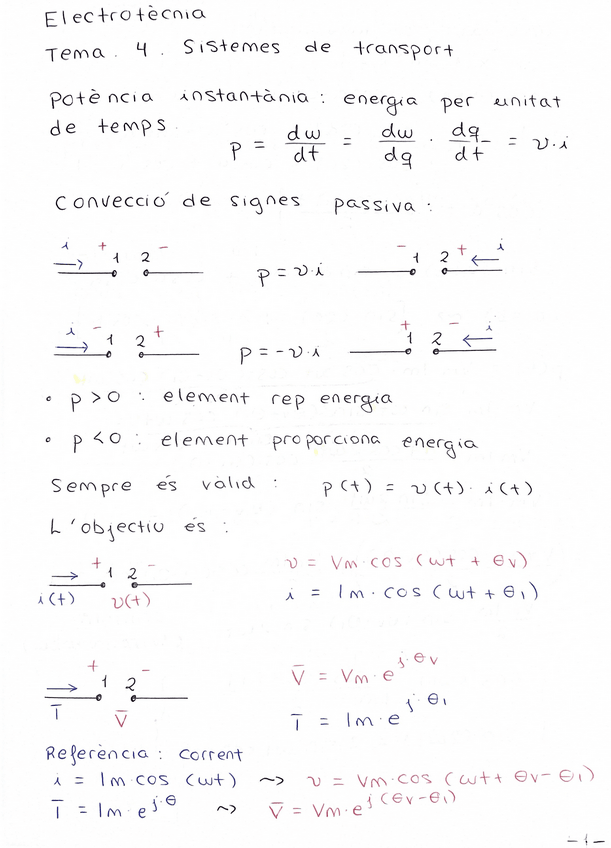 Electrotècnia
Tema. 4. Sistemes de transport
Potència instantània: energia per unitat
de temps.
p = dw/dt = dw/dq · dq/dt = v·i
Convecció de signes passiva:
i + 1 2 - p = v·i - 1 2 + i
i - 1 2 + p = -v·i + 1 2 - i
• p > 0 : element rep energia
• p < 0 : element proporciona energia
Sempre és vàlid : p(t) = v(t)·i(t)
L'objectiu és :
+ 1 2 - v = Vm·cos (wt + θv)
i(t) v(t) i = Im·cos (wt + θi)
+ 1 2 - V̄ = Vm·e^j·θv
Ī V̄ Ī = Im·e^j·θi
Referència: corrent
i = Im·cos (wt) ~> v = Vm·cos (wt + θv - θi)
Ī = Im·e^j·θ ~> V̄ = Vm·e^j(θv-θi)
-1-